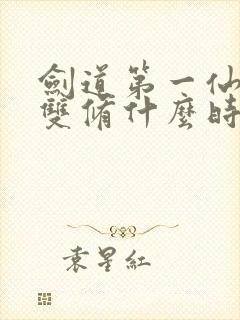 劍道第一仙
雙脩什麼時
袁星紅